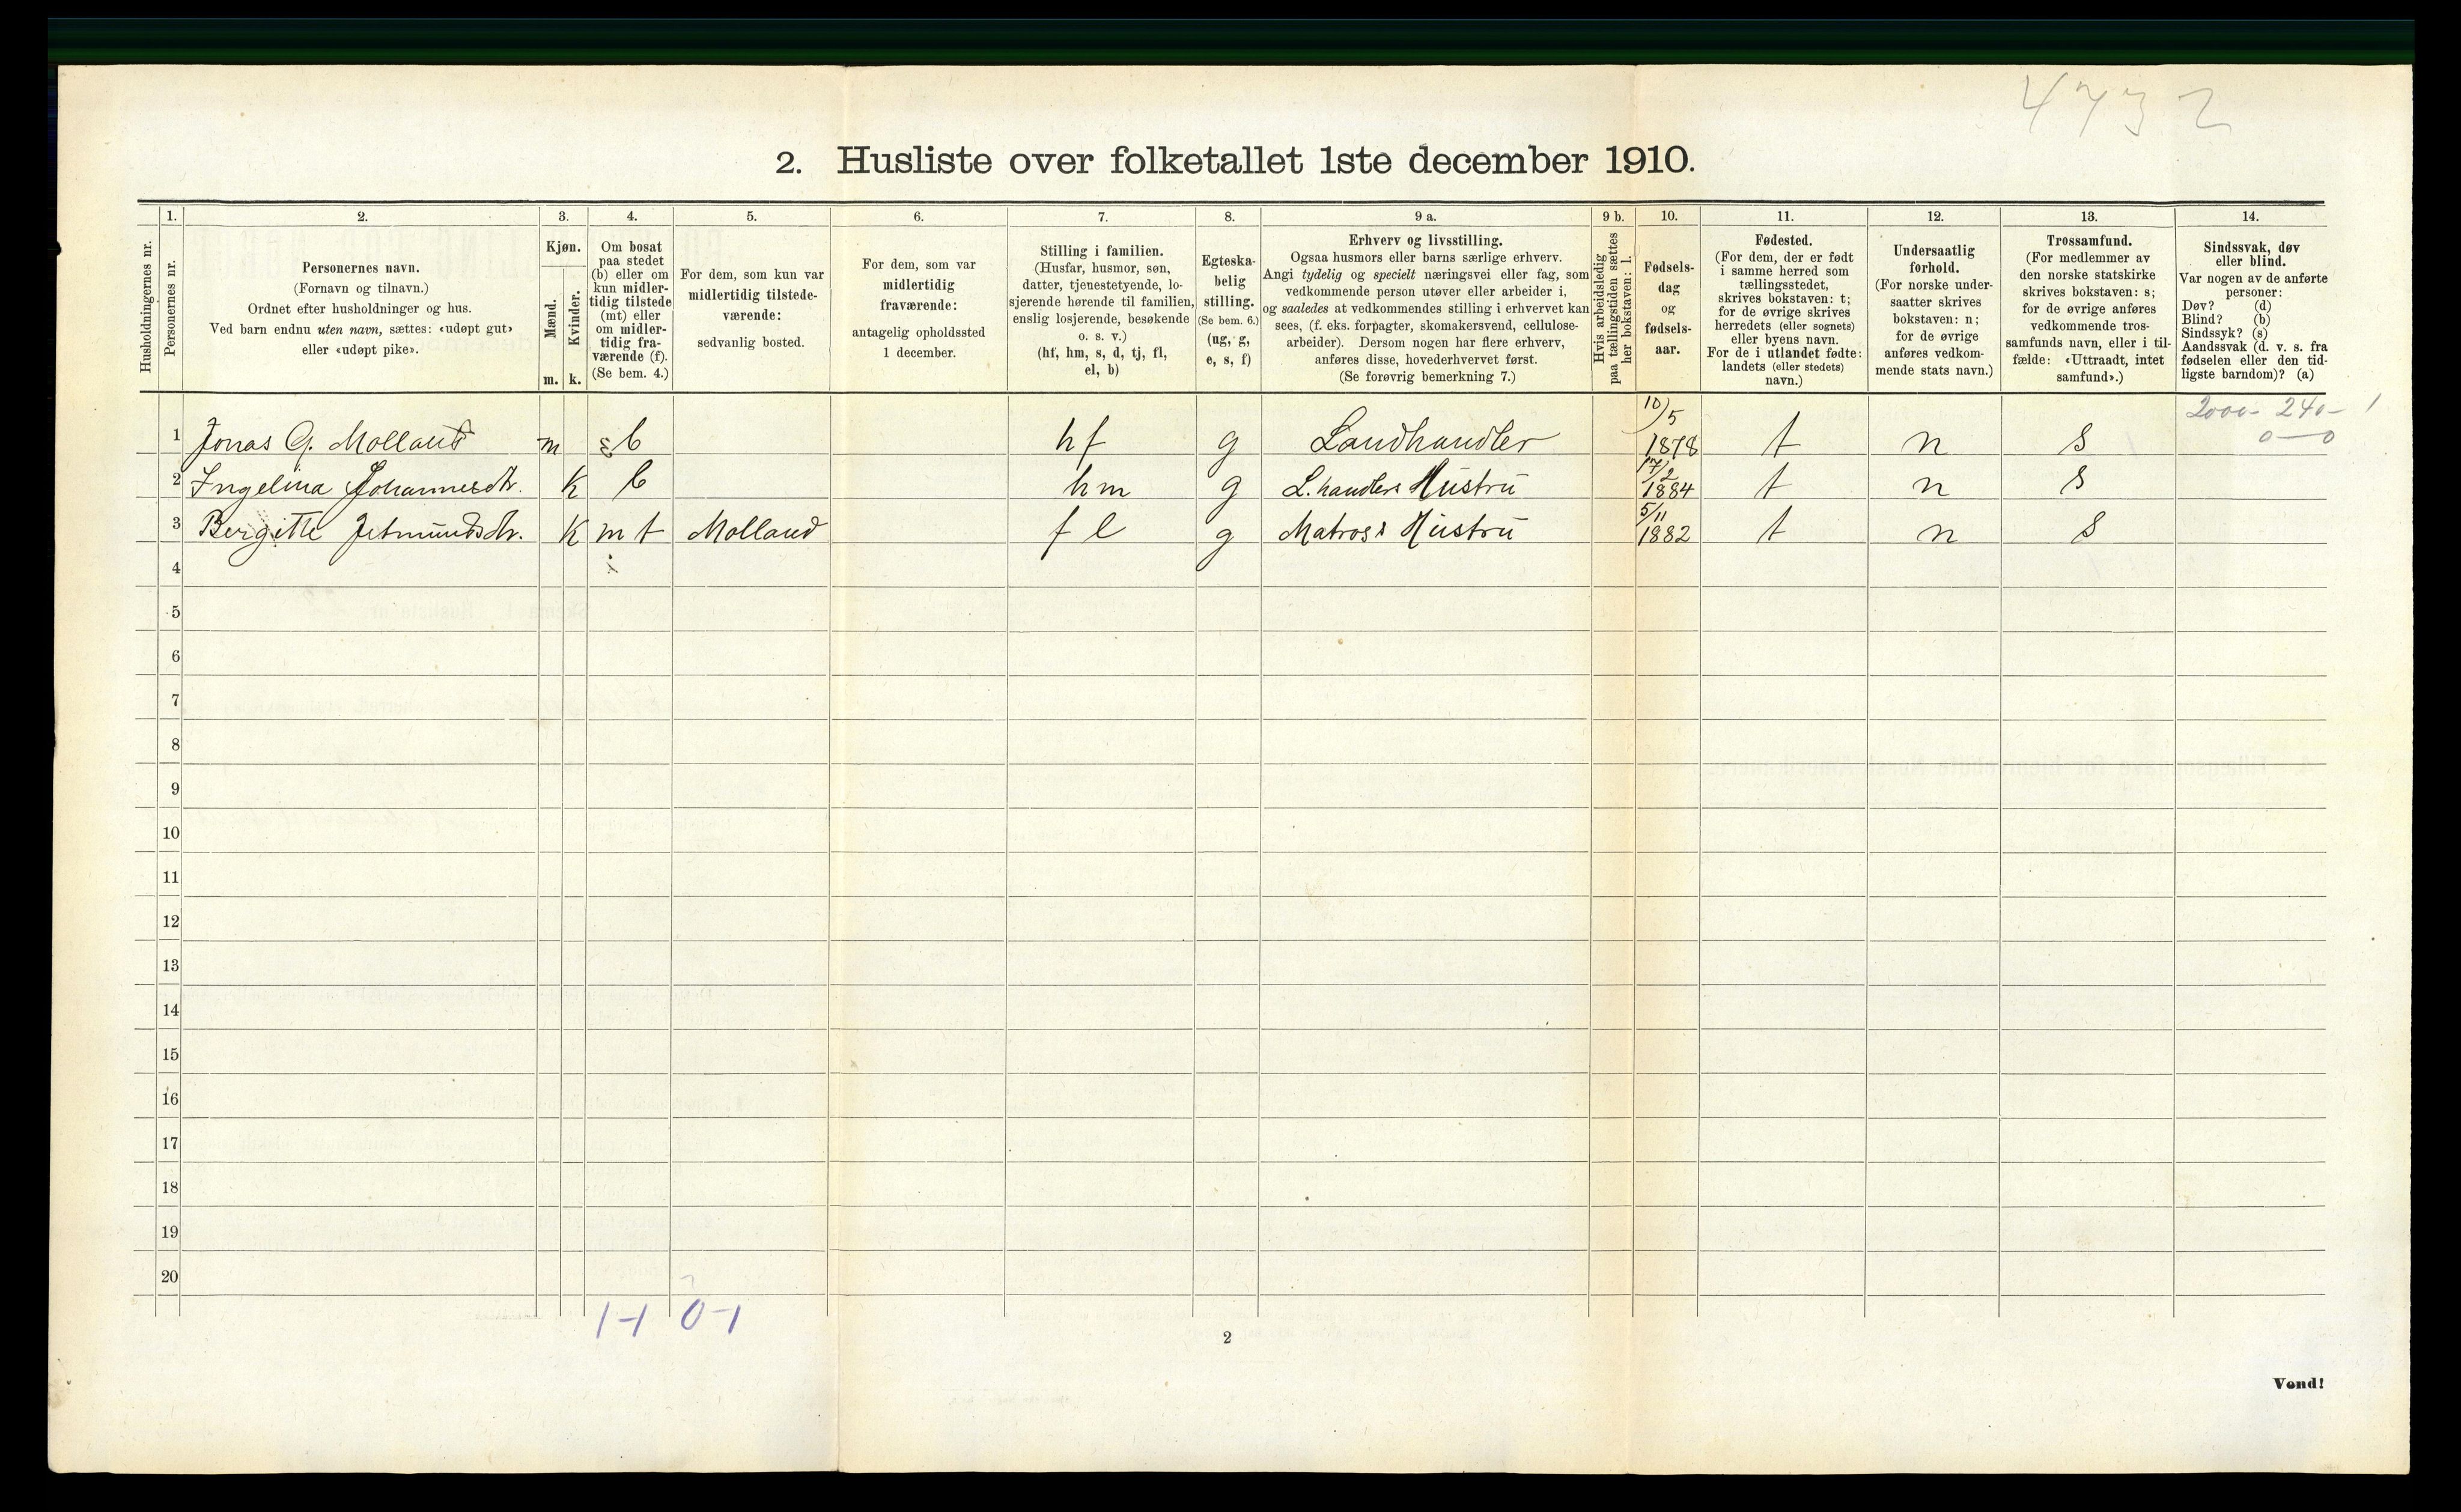 4732
2. Husliste over folketallet 1ste december 1910.
Husholdningernes nr.
1.
Personernes nr.
2.
Personernes navn.
(Fornavn og tilnavn.)
Ordnet efter husholdninger og hus.
Ved barn endnu uten navn, sættes: «udøpt gut»
eller «udøpt pike».
3.
Kjøn.
Mænd.
Kvinder.
m. k.
4.
Om bosat
paa stedet
(b) eller om
kun midler-
tidig tilstede
(mt) eller
om midler-
tidig fra-
værende (f).
(Se bem. 4.)
5.
For dem, som kun var
midlertidig tilstede-
værende:
sedvanlig bosted.
6.
For dem, som var
midlertidig
fraværende:
antagelig opholdssted
1 december.
7.
Stilling i familien.
(Husfar, husmor, søn,
datter, tjenestetyende, lo-
sjerende hørende til familien,
enslig losjerende, besøkende
o. s. v.)
(hf, hm, s, d, tj, fl,
el, b)
8.
Egteska-
belig
stilling.
(Se bem. 6.)
(ug, g,
e, s, f)
9 a.
Erhverv og livsstilling.
Ogsaa husmors eller barns særlige erhverv.
Angi tydelig og specielt næringsvei eller fag, som
vedkommende person utøver eller arbeider i,
og saaledes at vedkommendes stilling i erhvervet kan
sees, (f. eks. forpagter, skomakersvend, cellulose-
arbeider). Dersom nogen har flere erhverv,
anføres disse, hovederhvervet først.
(Se forøvrig bemerkning 7.)
9 b.
Hvis arbeidsledig
paa tællingstiden sættes
her bokstaven: l.
10.
Fødsels-
dag
og
fødsels-
aar.
11.
Fødested.
(For dem, der er født
i samme herred som
tællingsstedet,
skrives bokstaven: t;
for de øvrige skrives
herredets (eller sognets)
eller byens navn.
For de i utlandet fødte:
landets (eller stedets)
navn.)
12.
Undersaatlig
forhold.
(For norske under-
saatter skrives
bokstaven: n;
for de øvrige
anføres vedkom-
mende stats navn.)
13.
Trossamfund.
(For medlemmer av
den norske statskirke
skrives bokstaven: s;
for de øvrige anføres
vedkommende tros-
samfunds navn, eller i til-
fælde: «Uttraadt, intet
samfund».)
14.
Sindssvak, døv
eller blind.
Var nogen av de anførte
personer:
Døv? (d)
Blind? (b)
Sindssyk? (s)
Aandssvak (d. v. s. fra
fødselen eller den tid-
ligste barndom)? (a)
2000- 240- 1
0 — 0
1 Jonas G. Molland m b hf g Landhandler 10/5 1878 t n s
2 Ingelina Johannesdtr. k b hm g L.handlers Hustru 17/2 1884 t n s
3 Bergitte Jetmundsdtr. k mt Molland fl g Matros s Hustru 5/11 1882 t n s
4
5
6
7
8
9
10
11
12
13
14
15
16
17
18
19
20
1-1 0-1
2
Vend!